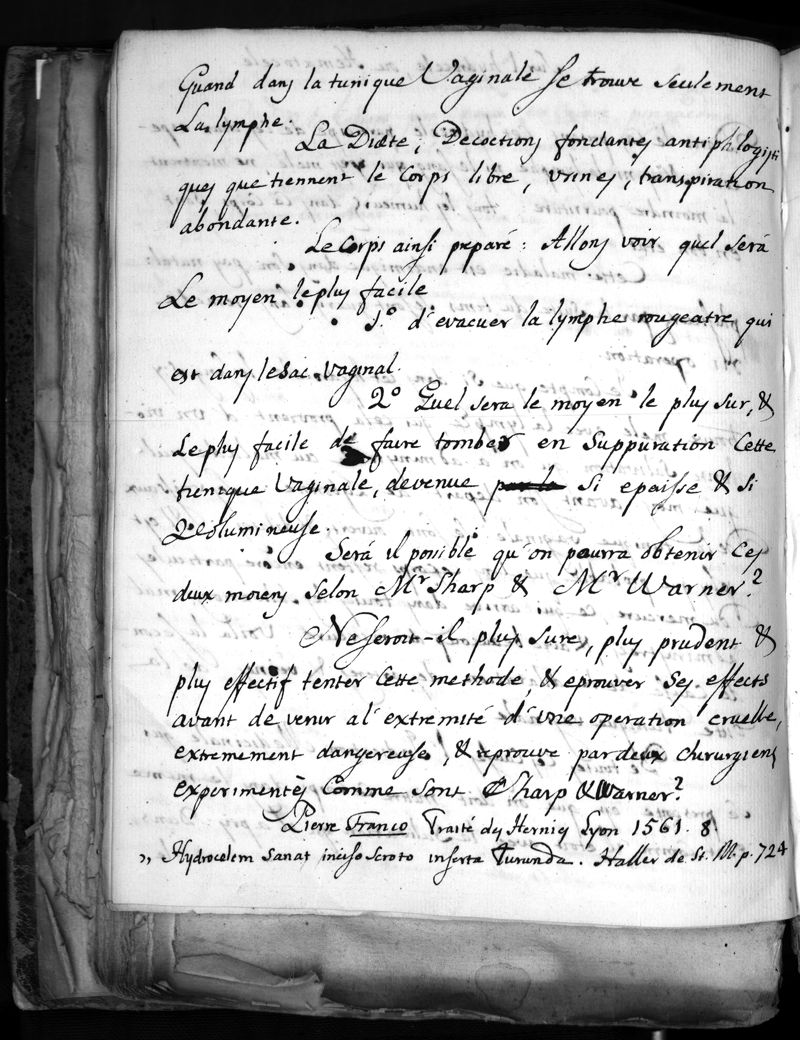 Quand dans la tunique Vaginale se trouve seulement
La lymphe.
La Diæte, Decoctions fondantes antiphlogisti
ques que tiennent le Corps libre, urines, transpiration
abondante.
Le Corps ainsi preparé: Allons voir quel será
Le moyen le plus facile
1.º d'evacuer la lymphe rougeatre qui
est dans le sac vaginal.
2º Quel sera le moyen le plus sur, &
Le plus facile de faire tomber en Suppuration Cette
tunique Vaginale, devenue si epaisse & si
Volumineuse.
Será il possible qu'on pourra obtenir Ces
deux moiens selon Mr Sharp & Mr Warner?
Ne seroit-il plus sure, plus prudent &
plus effectif tenter Cette methode, & eprouver Ses effects
avant de venir a l'extremité d'une operation cruelle,
extremement dangereuse, & reprouve par deux chirurgiens
experimentés Comme sont Sharp & Warner?
Pierre Franco Traité des Hernies Lyon 1561. 8.
„ Hydrocelem Sanat inciso Scroto inserta Turunda. Haller de St. M. p. 724